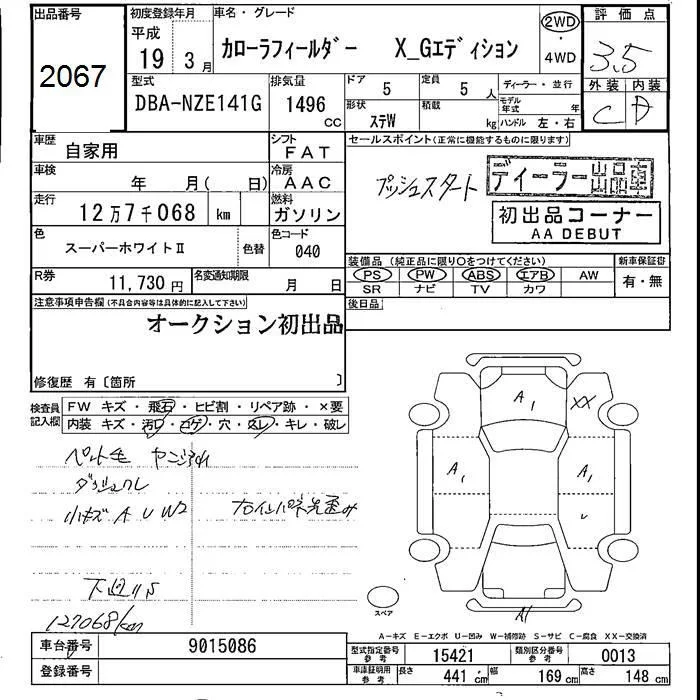 出品番号
2067
初度登録年月
平成
19 3月
車名・グレード
カローラフィールダー X_Gエディション
2WD
・
4WD
評価点
3.5
外装 内装
C D
型式
DBA-NZE141G
排気量
1496
CC
ドア
5
定員
5 人
形状
ステW
積載
kg
ディーラー・並行
モデル年式 年
ハンドル 左・右
車歴
自家用
シフト
FAT
車検
年 月( 日)
冷房
AAC
走行
12万7千068 km
燃料
ガソリン
色
スーパーホワイトII
色替
色コード
040
R券
11,730円
名変通知期限
月 日
セールスポイント(正常に機能するものに限ります)
プッシュスタート
ディーラー出品車
初出品コーナー
AA DEBUT
装備品(純正品に限り○をつけてください)
新車保証書
PS PW ABS エアB AW
有・無
SR ナビ TV カワ
後日品
注意事項申告欄(不具合内容等は具体的に記入して下さい)
オークション初出品
修復歴 有〔箇所 〕
検査員記入欄
FW キズ・飛石・ヒビ割・リペア跡・×要
内装 キズ・汚レ・コゲ・穴・スレ・キレ・破レ
ペット毛
小キズ A U W2
下廻りS
127068km
A1
XX
A1
A1
A1
スペア
A-キズ E-エクボ U-凹み W-補修跡 S-サビ C-腐食 XX-交換済
車台番号
9015086
登録番号
型式指定番号 参考
15421
類別区分番号 参考
0013
車庫証明用 参考
長さ 441 cm
幅 169 cm
高さ 148 cm